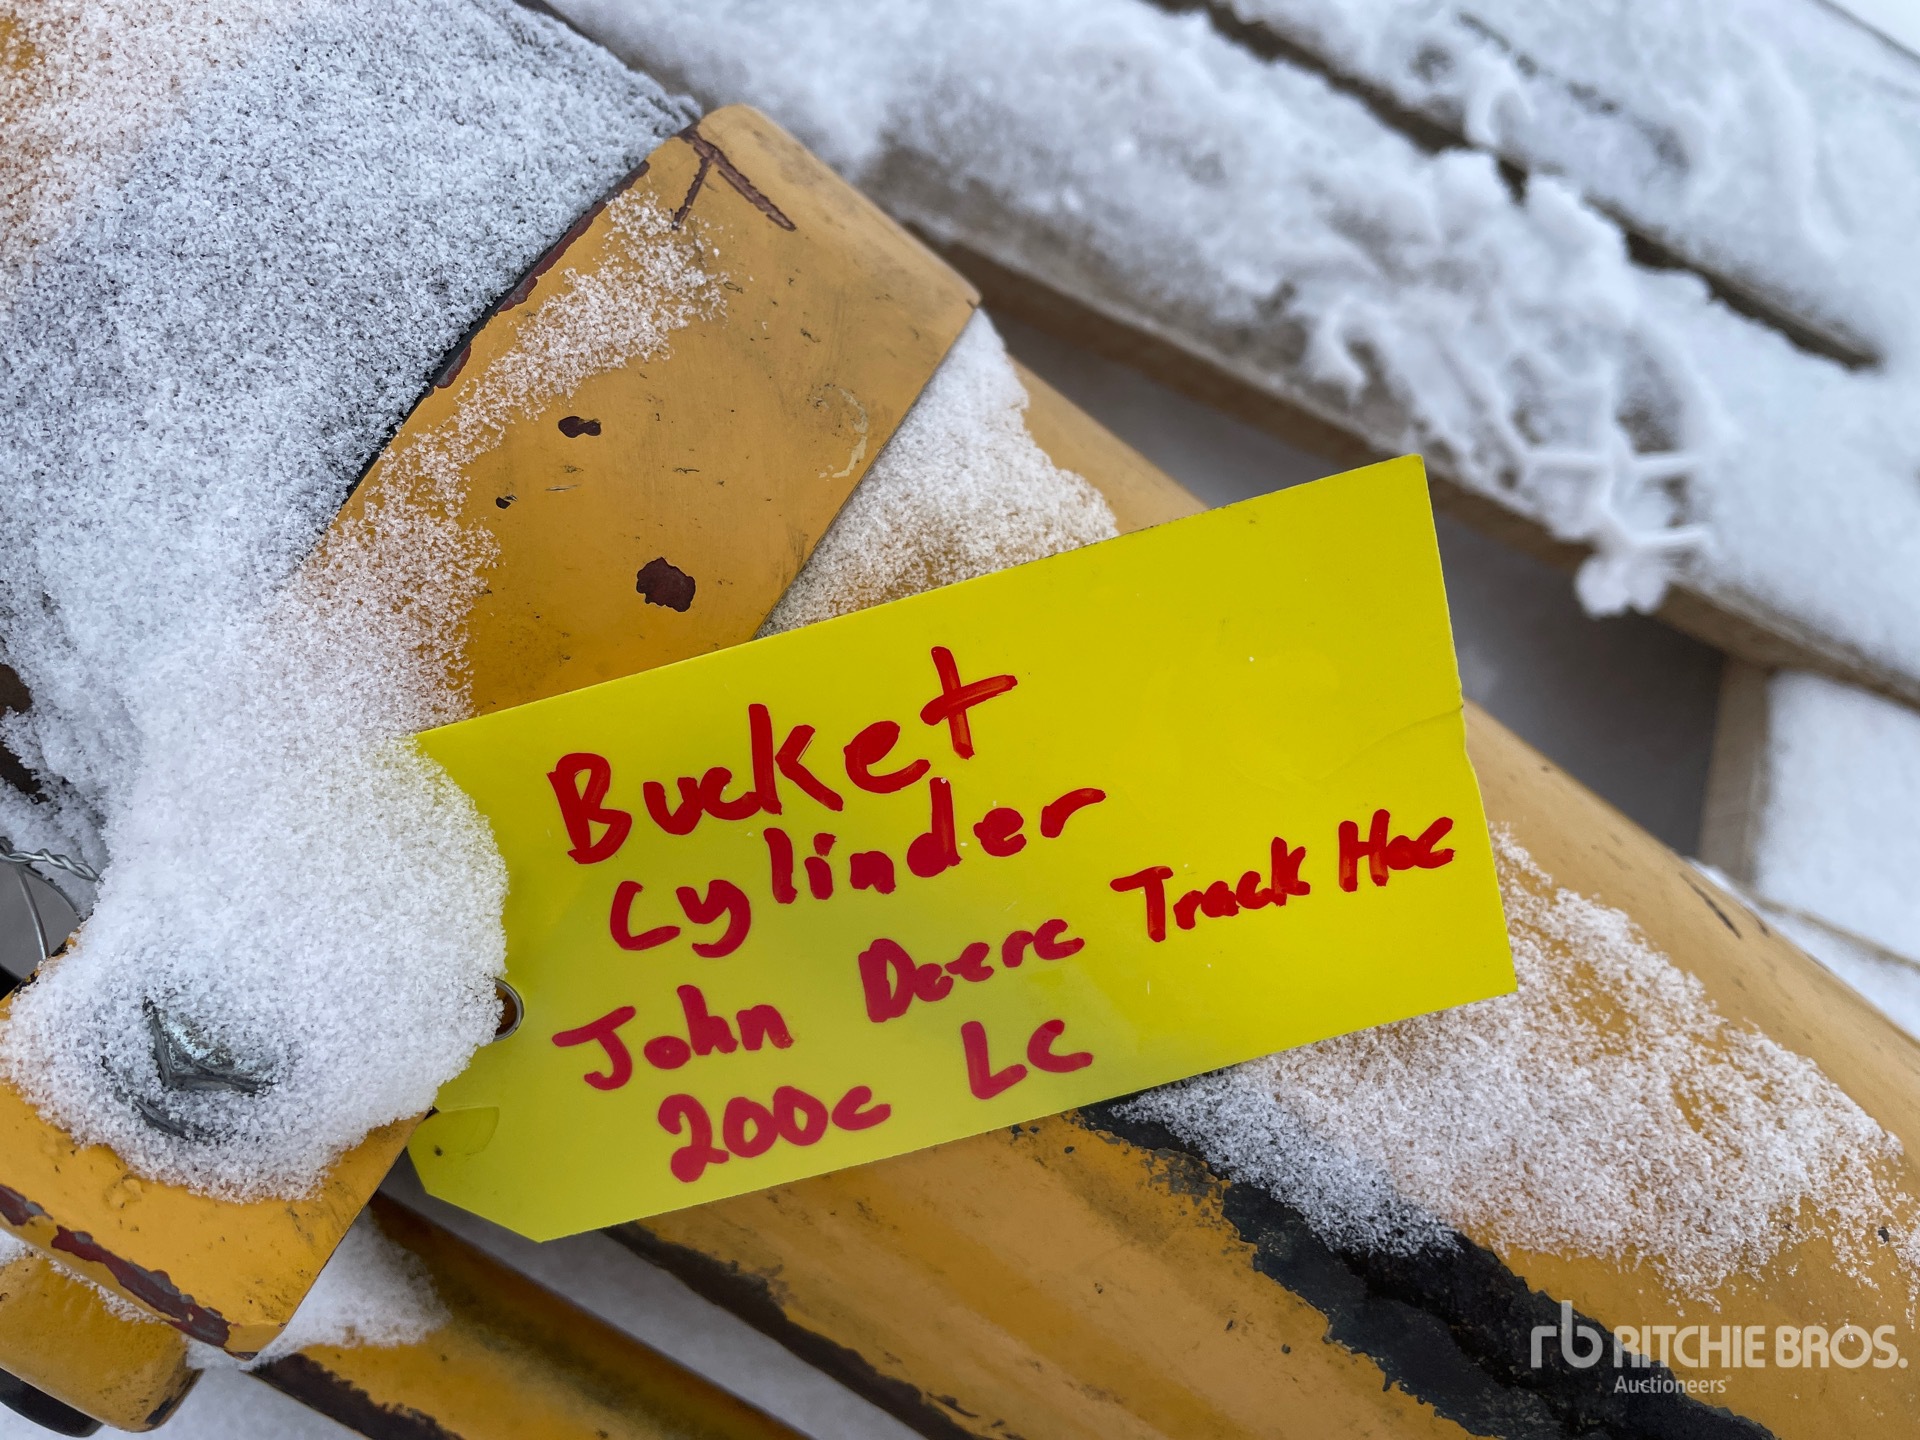 Bucket
Cylinder
John Deere Track Hoe
200c LC
rb RITCHIE BROS.
Auctioneers